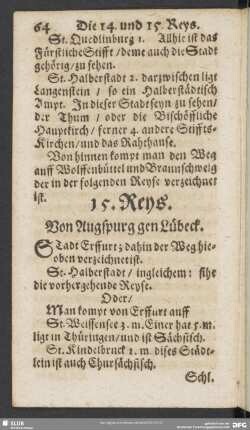 64 Die 14. und 15. Reys.
St. Quedlinburg 1. Allhie ist das
Fürstliche Stifft / deme auch die Stadt
gehörig / zu sehen.
St. Halberstadt 2. darzwischen ligt
Langenstein / so ein Halberstädtisch
Ampt. In dieser Stadt seyn zu sehen /
der Thum / oder die Bischöffliche
Hauptkirch / ferner 4. andere Stiffts-
Kirchen / und das Rahthause.
Von hinnen kompt man den Weg
auff Wolffenbüttel und Braunschweig
der in der folgenden Reyse verzeichnet
ist.
15. Reys.
Von Augspurg gen Lübeck.
STadt Erffurt; dahin der Weg hie-
oben verzeichnet ist.
St. Halberstadt / ingleichem: sihe
die vorhergehende Reyse.
Oder /
Man kompt von Erffurt auff
St. Weissensee 3. m. Einer hat 5. m.
ligt in Thüringen / und ist Sächsisch.
St. Kindelbruck 1. m. dises Städt-
lein ist auch Chursächsisch.
Schl.